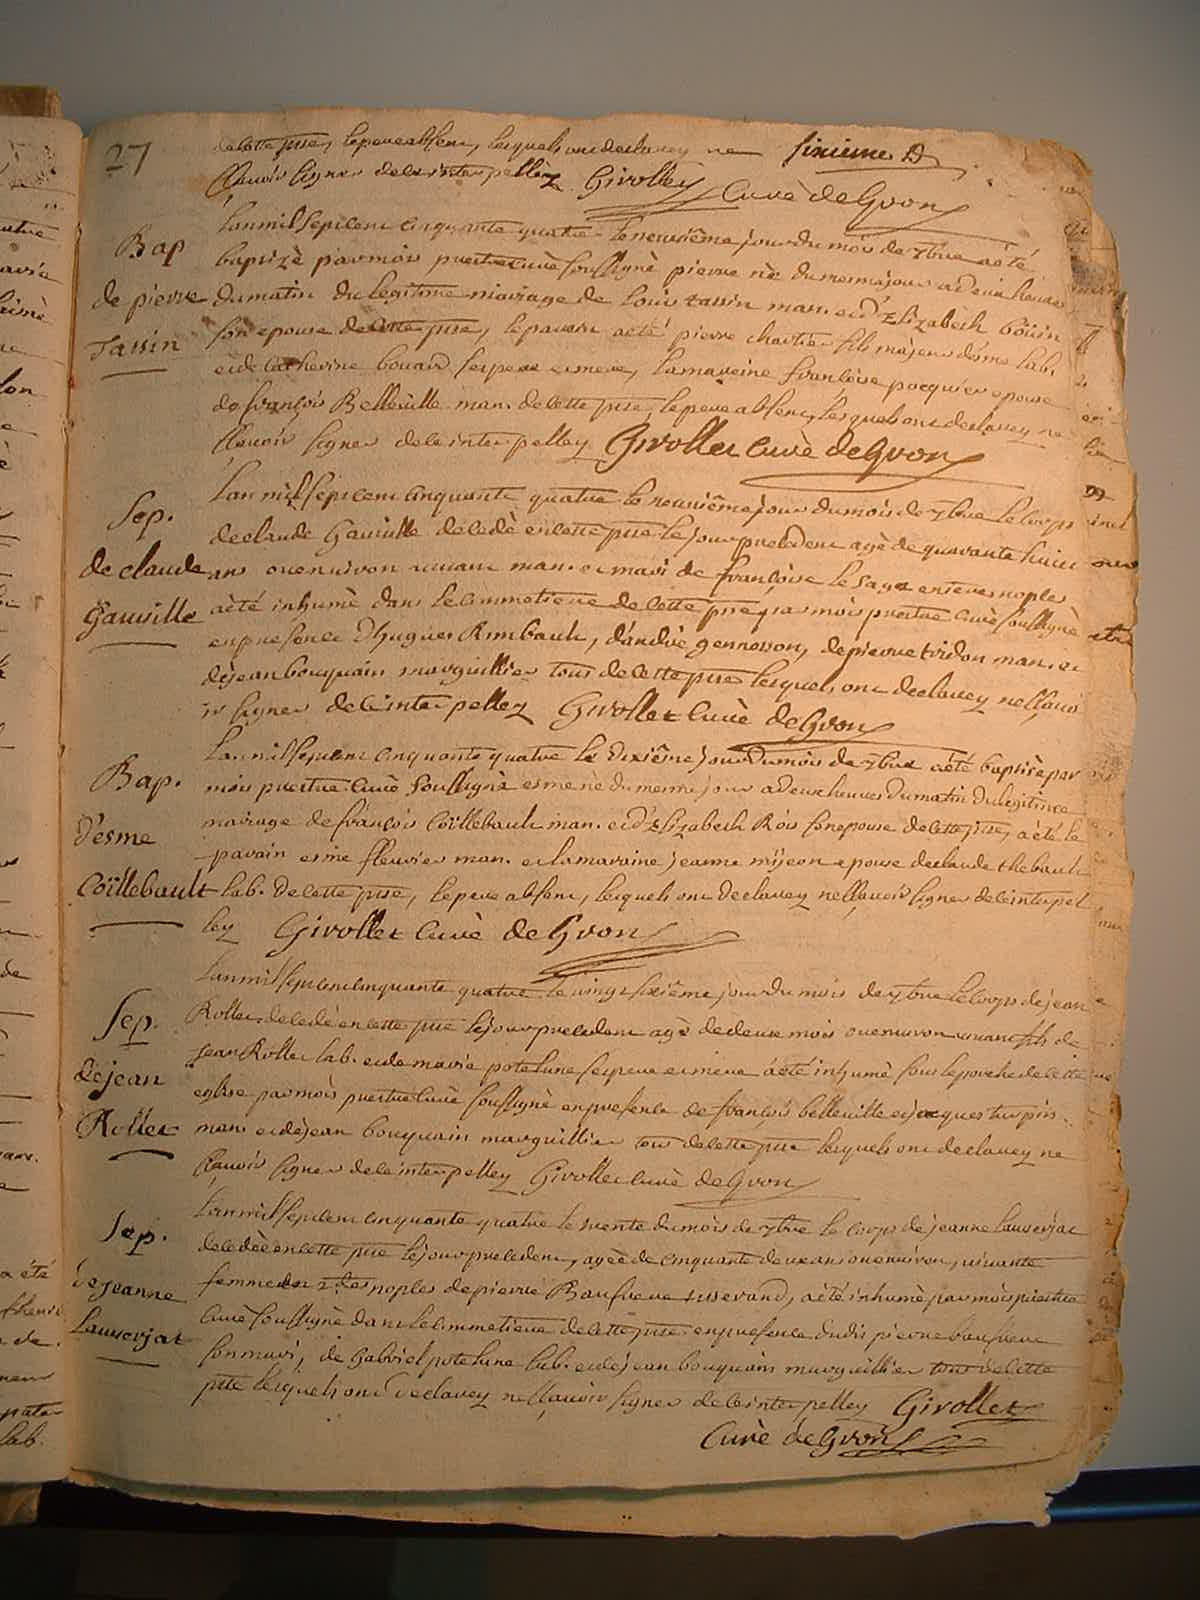 27
de cette psse, le pere absent, lesquels ont declarey ne sixieme
sçavoir signer de ce interpelley Girolley Curé de Gvon
Bap
de pierre
Tassin
L'an mil sept cent cinquante quatre le neuvième jour du mois de 7bre a été
baptizè par moi prestre curè soussignè pierre nè du meme jour a deux heures
du matin du legitime mariage de Louis tassin man. et d'Elizabeth boüin
son epouse de cette psse, le parain a eté pierre chartier fils majeur d'esme lab.
et de Catherine bouard ses pere et mere, la maraine françoise pocquier epouse
de françois Belleuille man. de cette psse, le pere absent, lesquels ont declarey ne
sçavoir signer de ce interpelley Girollet Curè de Gvon
Sep.
de claude
Gauuille
L'an mil sept cent cinquante quatre le neuvième jour du mois de 7bre le corps
de claude Gauuille decedè en cette psse le jour precedent agè de quarante huict
ans ou environ vivant man. et mari de françoise le sage en 1eres noples
a été inhumè dans le cimmetiere de cette psse par moi prestre curè soussignè
en presence d'hugues Rimbault, d'andrè gennoson, de pierre tridon man. et
de jean bouquain marguillier tous de cette psse lesquels ont declarey ne sçavo
ir signer de ce interpelley Girollet Curè de Gvon
Bap.
d'esme
Coïllebault
L'an mil sept cent cinquante quatre le dixième jour du mois de 7bre a été baptisè par
moi prestre curè soussignè esme nè du meme jour a deux heures du matin du legitime
mairage de françois Coïllebault man. et d'Elizabeth Rois son epouse de cette psse, a été le
parain esme fleurier man. et la maraine jeanne mijeon epouse de claude thebault
lab. de cette psse, le pere absent, lesquels ont declarey ne sçavoir signer de ce interpel
ley Girollet Curè de Gvon
Sep.
de jean
Rollet
L'an mil sept cent cinquante quatre le vingt sixième jour du mois de 7bre le corps de jean
Rollet decedè en cette psse le jour precedent agè de deux mois ou environ vivant fils de
jean Rollet lab. et de marie potelune ses pere et mere a été inhumè sous le porche de cette
eglise par moi prestre curè soussignè en presence de françois belleuille et jacques turpin
man. et de jean bouquain marguillier tous de cette psse lesquels ont declarey ne
sçavoir signer de ce interpelley Girollet curè de Gvon
Sep.
de jeanne
Lauverjat
L'an mil sept cent cinquante quatre le trente du mois de 7bre le corps de jeanne lauverjat
decedèe en cette psse le jour precedent, agèe de cinquante deux ans ou environ vivante
femme en 2des noples de pierre Baufrere tisserand, a été inhumè par moi prestre
curè soussignè dans le cimmetiere de cette psse en presence dudit pierre baufrere
son mari, de Gabriel potelune lab. et de jean bouquain marguillier tous de cette
psse lesquels ont declarey ne sçavoir signer de ce interpelley Girollet
Curè de Gvon